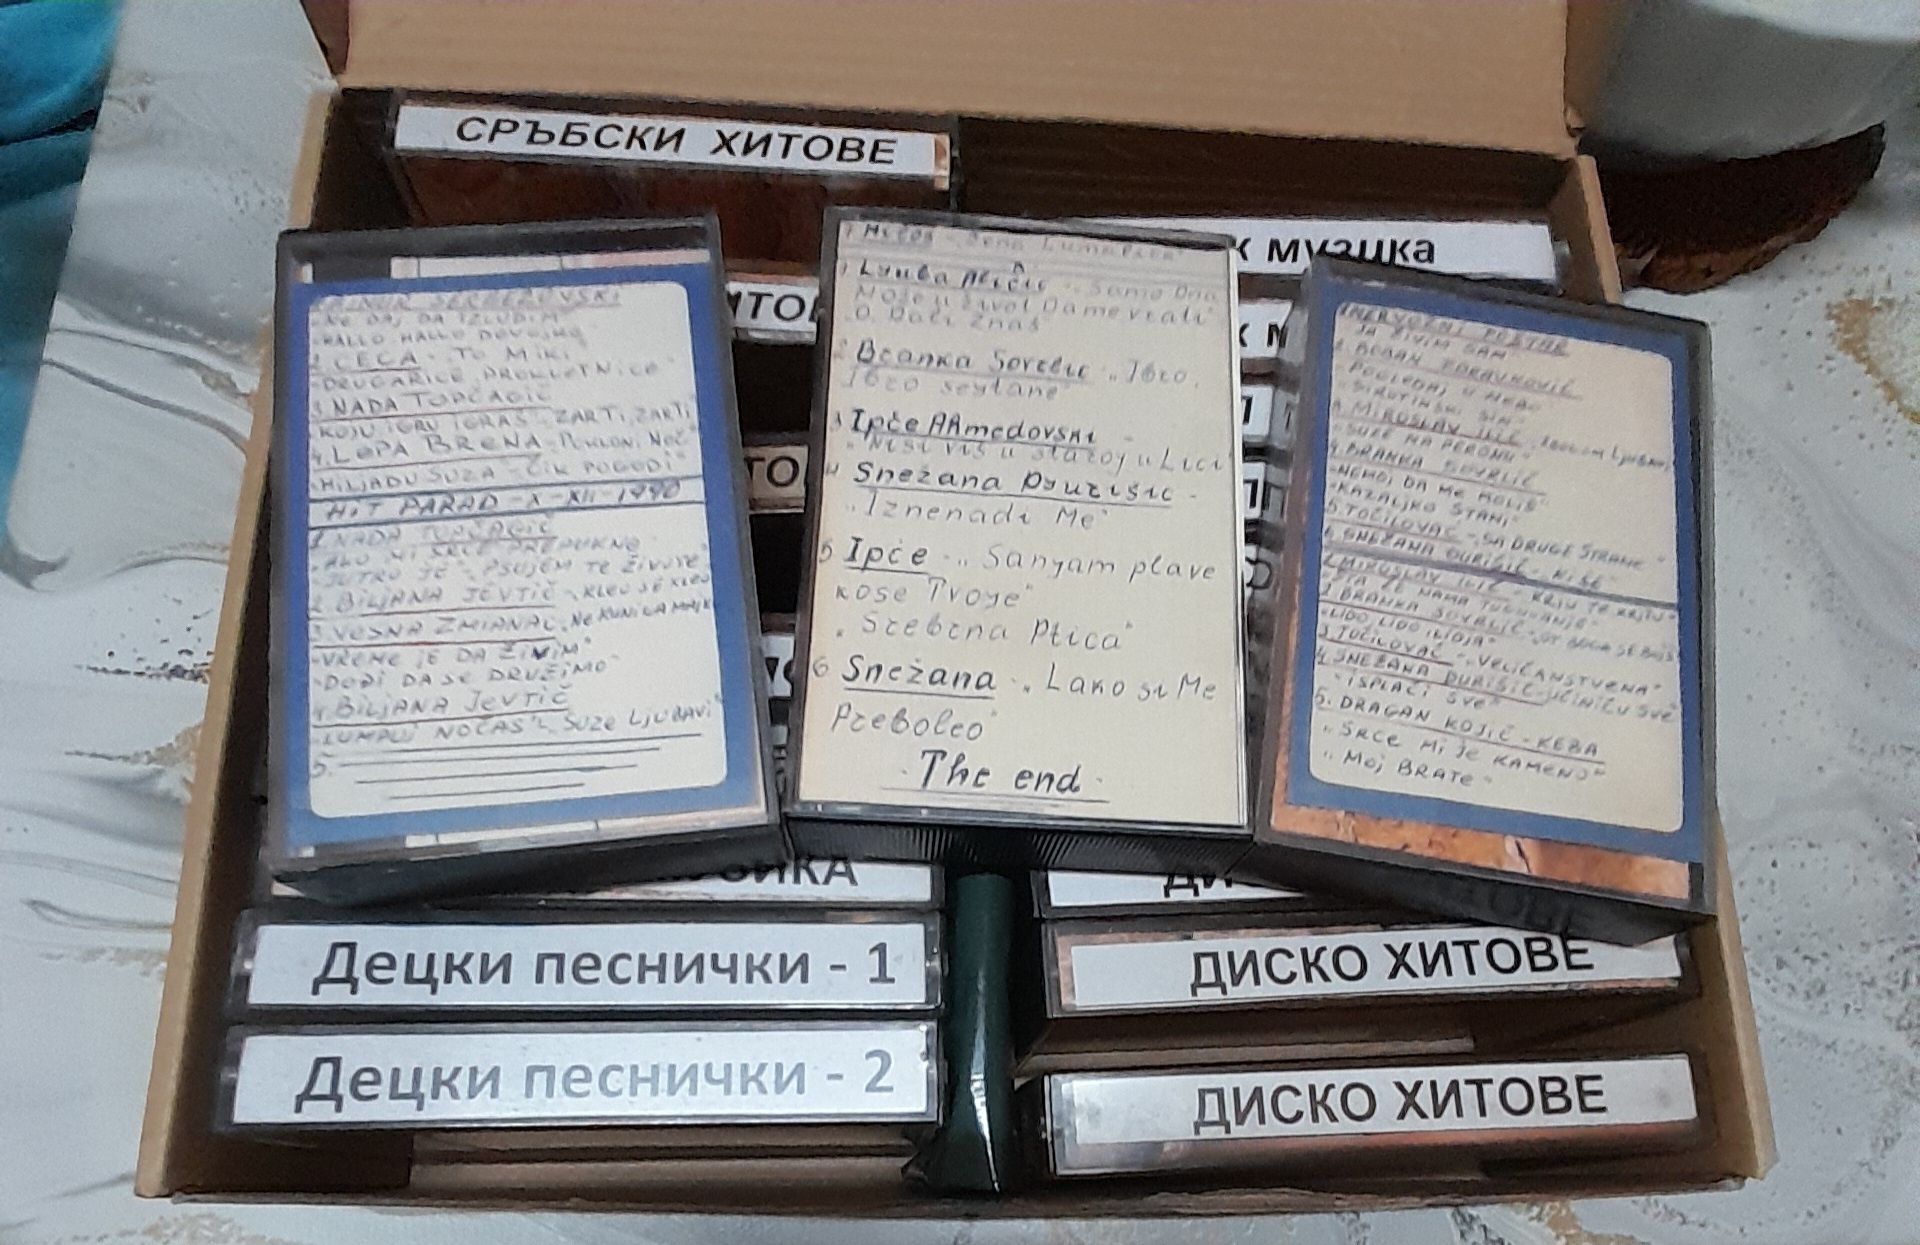 СРЪБСКИ ХИТОВЕ
к музика
SERBEZOVSKI
- NE DAJ DA IZLUDIM
- HALLO HALLO DEVOJKO
2. CECA - TO MIKI
- DRUGARICE PROKLETNICE
3. NADA TOPČAGIČ
KOJU IGRU IGRAŠ - ZARTI, ZARTI
4. LEPA BRENA - POKLONI NOČ
- HILJADU SUZA - ČIK POGODI"
HIT PARAD - X - XII - 1990
1. NADA TOPČAGIČ
- AKO MI SRCE PREPUKNE
JUTRO JE", PSUJEM TE ŽIVOTE"
2. BILJANA JEVTIČ - KLEO SE KLEO
3. VESNA ZMIANAC "NE KUNI GA MAJKO
- VREME JE DA ŽIVIM"
- DOĐI DA SE DRUŽIMO"
4. BILJANA JEVTIČ
- LUMPUJ NOČAS" - SUZE LJUBAVI"
5.
"Žena
1 Lyuba Aličic "Samo Ona
Moje u život Dame vrati"
O, Dali Znaš"
2 Branka Sovrlic "Ibro,
Ibro seytane"
3 Ipče AAmedovski -
"Nisi više u staroy uLici
4 Snežana Dyurišic -
"Iznenadi Me"
5 Ipče - "Sanyam plave
kose Tvoye"
"Srebrna Ptica"
6 Snežana - "Lako si Me
Preboleo"
- The end -
1 NERVOZNI POŠTAR
JA ŽIVIM SAM"
2. BOBAN ZDRAVKOVIČ
POGLEDAJ U NEBO
SIROTINSKI SIN"
3. MIROSLAV ILIČ
- SUZE NA PERONU"
4. BRANKA SOVRLIČ
- NEMOJ DA ME MOLIŠ"
- KAZALJKO STANI"
5. TOČILOVAC - SA DRUGE STRANE"
6. SNEŽANA ĐURIŠIČ - KIŠE"
1. MIROSLAV ILIČ - KRIJU TE KRIJU"
- ŠTA ČE NAMA TUGOVANJE"
2. BRANKA SOVRLIČ - OD BOGA SE BOJIŠ
- LIDO LIDO LIDIJA"
3. TOČILOVAC - "VELIČANSTVENA"
4. SNEŽANA ĐURIŠIČ - UČINIČU SVE
"ISPLAČI SVE"
5. DRAGAN KOJIČ - KEBA
"SRCE MI JE KAMENO"
"MOJ BRATE"
Децки песнички - 1
ДИСКО ХИТОВЕ
Децки песнички - 2
ДИСКО ХИТОВЕ